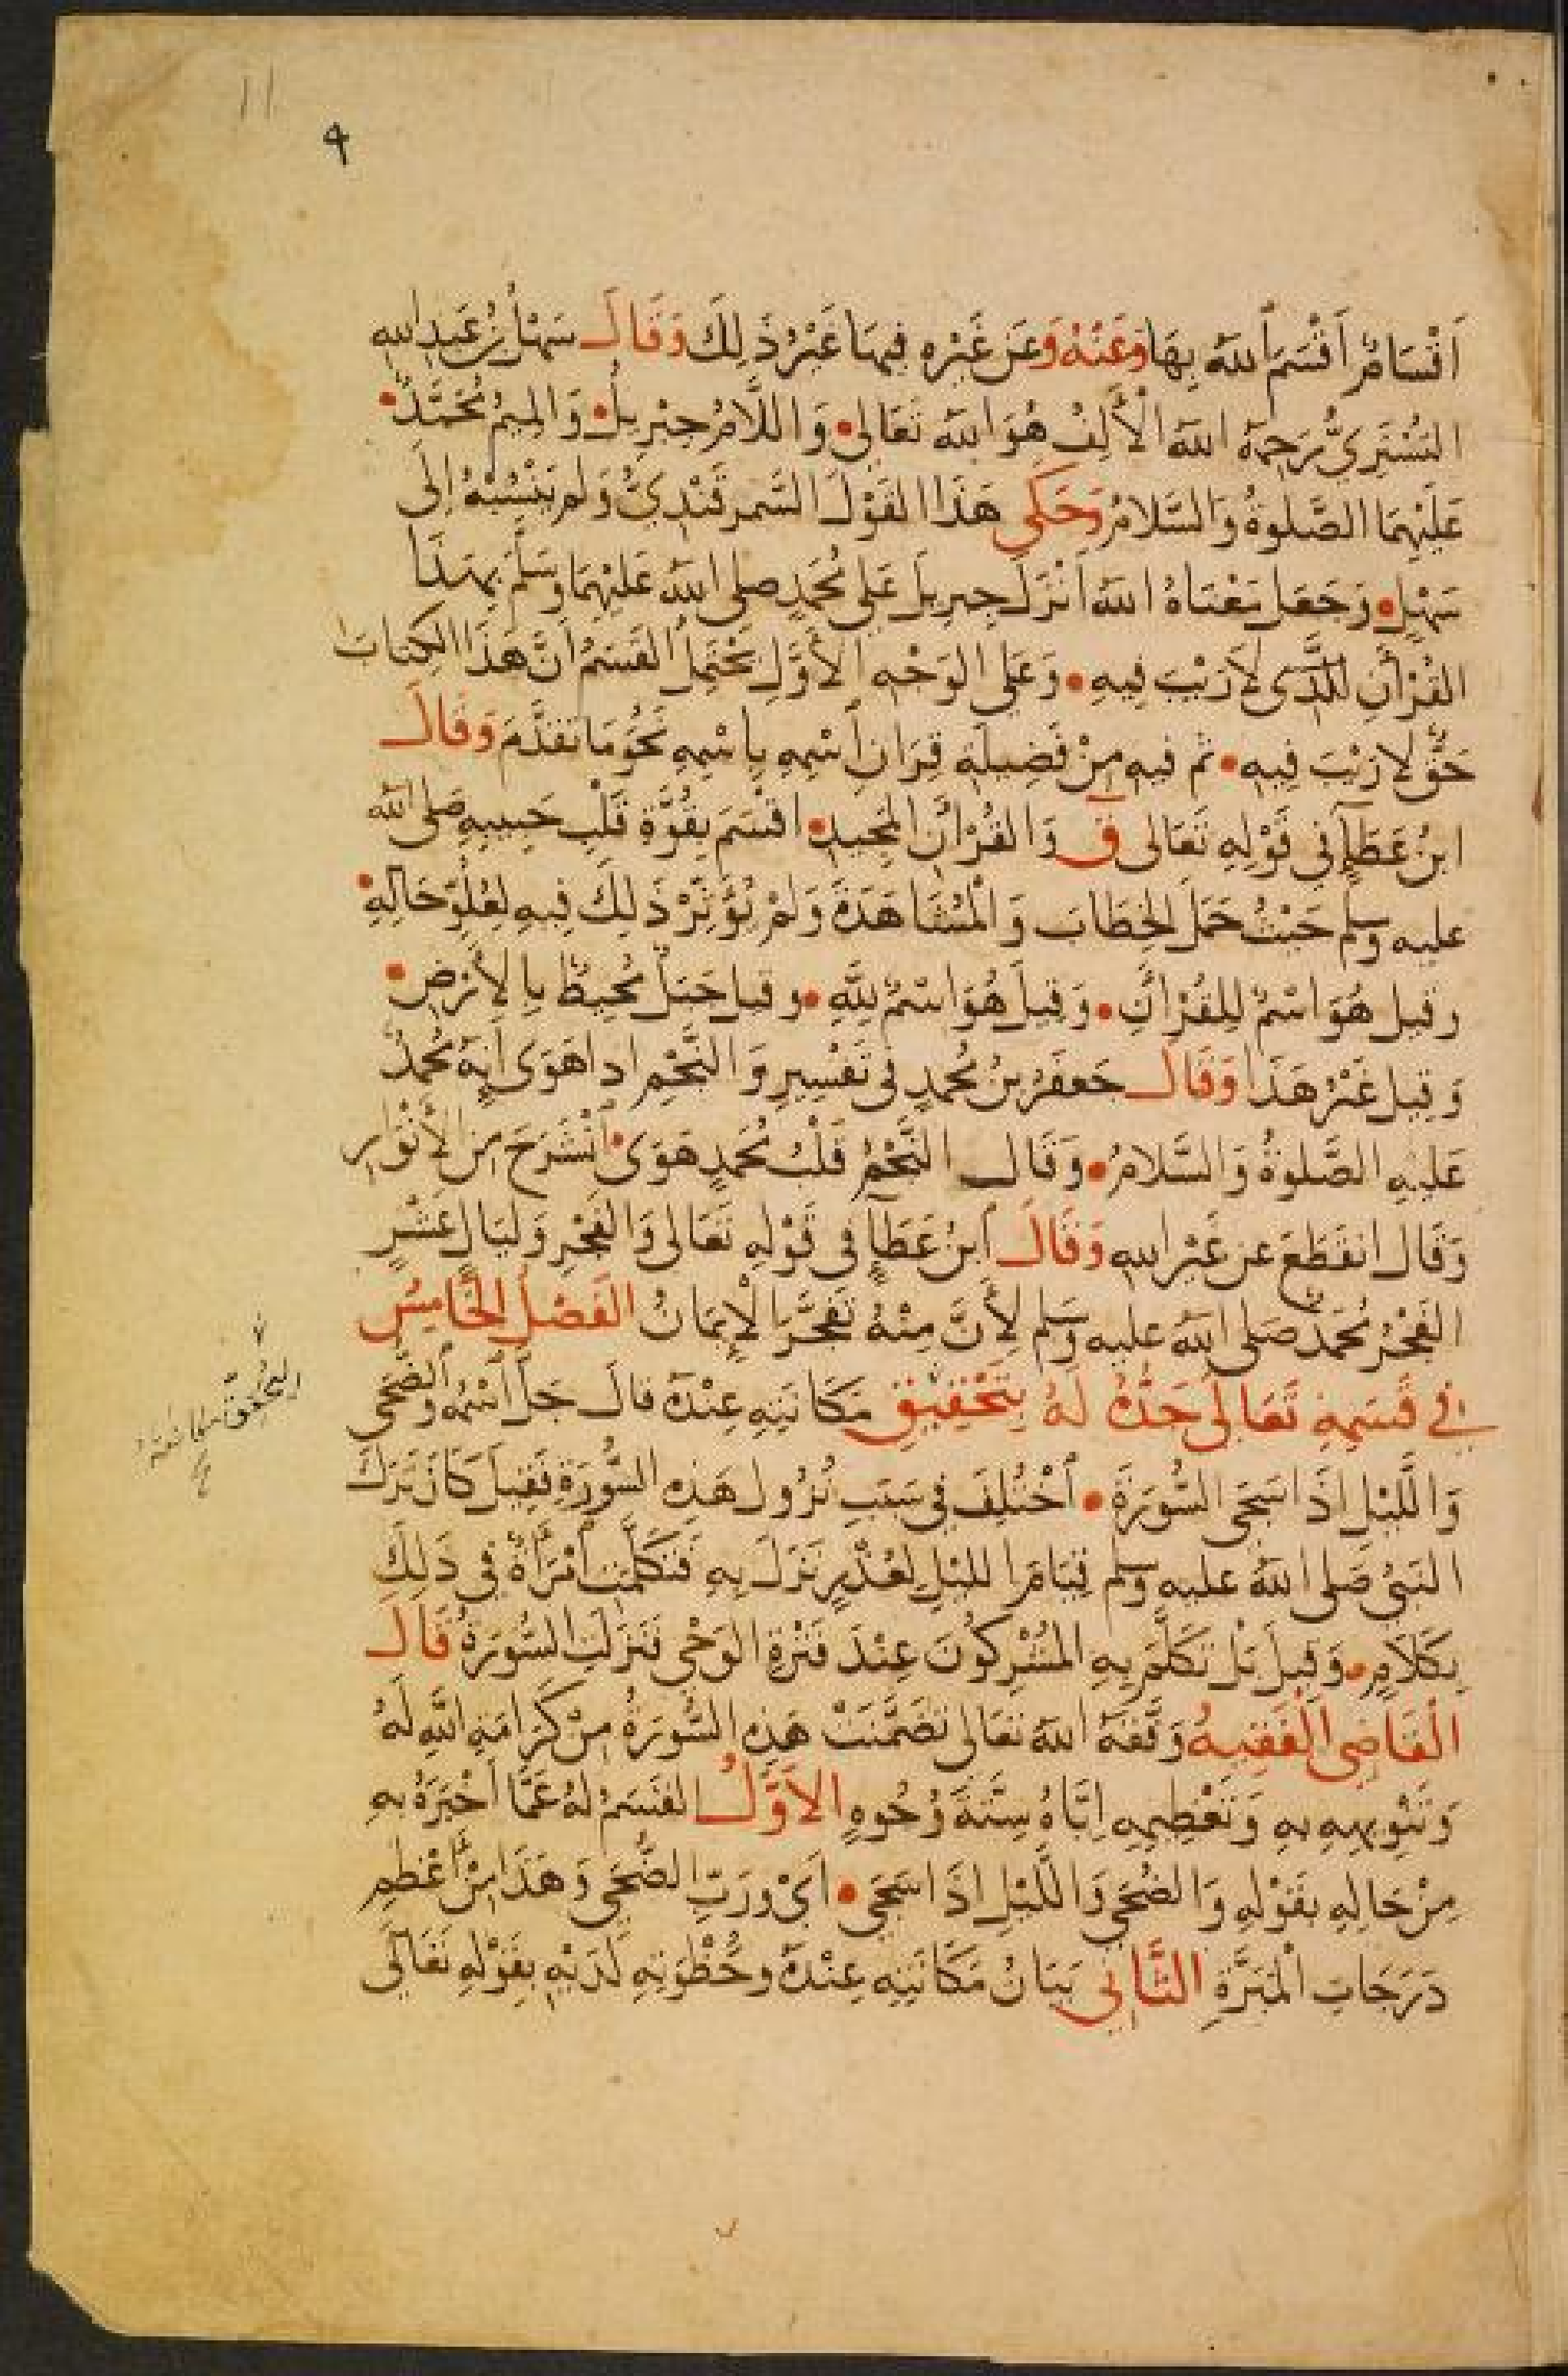 11
٩
اَقْسَامٌ اَقْسَمَ اللهُ بِهَا وَعَنْهُ وَعَن غَيْرِهِ فِيهَا غَيْرُ ذَلِكَ وَقَالَ سَهْلُ بْنُ عَبدِ اللهِ
التُسْتَرِيُّ رَحِمَهُ اللهُ الْأَلِفُ هُوَ اللهُ تَعَالى • وَاللَّامُ جِبْرِيلُ • وَالمِيمُ مُحَمَّدٌ •
عَلَيْهِمَا الصَّلوةُ وَالسَّلامُ وَحَكَى هَذَا القَوْلَ السَّمرقَنْدِيُّ وَلم يَنْسُبْهُ إِلَى
سَهْلٍ • وَجَعَلَ مَعْنَاهُ اللهُ اَنْزَلَ جِبرِيلَ عَلى مُحَمَدٍ صلى اللهُ عَلَيْهِمَا وَسَلَّمَ بِهَذَا
القُرْأنِ الَّذِى لاَ رَيْبَ فِيهِ • وَعَلى الوَجْهِ الأَوَّلِ يَحْتَمِلُ القَسَمُ اَنَّ هَذَا الكِتَابَ
حَقٌّ لاَ رَيْبَ فِيهِ • ثم فِيهِ مِنْ فَضِيلَةِ قِرَانِ اَسْمِهِ بِاسْمِهِ نَحْوُ مَا تَقَدَّمَ وَقَالَ
ابنُ عَطَاءٍ فِي قَوْلِهِ تَعَالى قٓ وَالقُرْآنِ المَجِيدِ • اقْسَمَ بِقُوَّةِ قَلْبِ حَبِيبِهِ صَلى اللهُ
عليه وسلم حَيْثُ حَمَلَ الخِطَابَ وَالْمُشَاهَدَةَ وَلَمْ يُؤَثِّرْ ذَلِكَ فِيهِ لِعُلُوِّ حَالِهِ •
وقيل هُوَ اسْمٌ لِلقُرْآنِ • وَقِيلَ هُوَ اسْمٌ لِلَّهِ • وقيل جَبَلٌ مُحِيطٌ بِالأَرْضِ •
وَقِيلَ غَيْرُ هَذَا وَقَالَ جَعفَرُ بنُ مُحَمدٍ فى تَفْسِيرِ وَالنَّجْمِ اذا هَوَى اِنَّهُ مُحَمدٌ
عَلَيْهِ الصَّلوةُ وَالسَّلامُ • وَقَالَ النَّجْمُ قَلْبُ مُحَمدٍ هَوَى اَنْشَرَحَ مِنَ الأَنْوَارِ
وَقَالَ انقَطَعَ عن غَيْرِ اللهِ وَقَالَ اَبنُ عَطَاءٍ فى قَوْلِهِ تَعَالى وَالفَجْرِ وَلَيَالٍ عَشْرٍ
الفَجْرُ مُحَمَدٌ صَلى اللهُ عليه وَسَلم لِأَنَّ مِنْهُ تَفَجَّرَ الْإِيمَانُ الفَصْلُ الخَامِسُ
فِي قَسَمِهِ تَعَالَى جَدُّهُ لَهُ بِتَحْقِيْقِ مَكَانَتِهِ عِنْدَهُ قالَ جَلَّ اَسْمُهُ وَالضُّحَى
وَاللَّيْلِ اذَا سَجَى السُّورَةَ • اُخْتُلِفَ فِي سَبَبِ نُزُولِ هَذِهِ السُّورَةِ فَقِيلَ كَانَ تَرْكَ
النَبِيِّ صَلى اللهُ عليه وسلم قِيَامَ الليْلِ لِعُذْرٍ نَزَلَ بِهِ فَتَكَلَّمَتِ اَمْرَأَةٌ فِي ذَلِكَ
بِكَلاَمٍ • وَقِيلَ بَلْ تَكَلَّمَ بِهِ المُشْرِكُونَ عِنْدَ فَتْرَةِ الوَحْىِ فَنَزَلَتِ السُّورَةُ قَالَ
الْقَاضِى الْفَقِيهُ وَفَّقَهُ اللهُ تَعَالى تَضَمَّنَتْ هَذِهِ السُّورَةُ مِنْ كَرَامَةِ اللَّهِ لَهُ
وَتَنْوِيهِهِ بِهِ وَتَعْظِيمِهِ اِيَّاهُ سِتَّةَ وُجُوهٍ الاَوَّلُ القَسَمُ لَهُ عَمَّا اَخْبَرَهُ بِهِ
مِنْ حَالِهِ بِقَوْلِهِ وَالضُحَى وَاللَّيْلِ اذَا سَجَى • اَيْ وَرَبِّ الضُّحَى وَهَذَا مِنْ اَعْظَمِ
دَرَجَاتِ الْمَبَرَّةِ الثَّانِي بَيَانُ مَكَانَتِهِ عِنْدَهُ وَحُظْوَتِهِ لَدَيْهِ بِقَوْلِهِ تَعَالَى